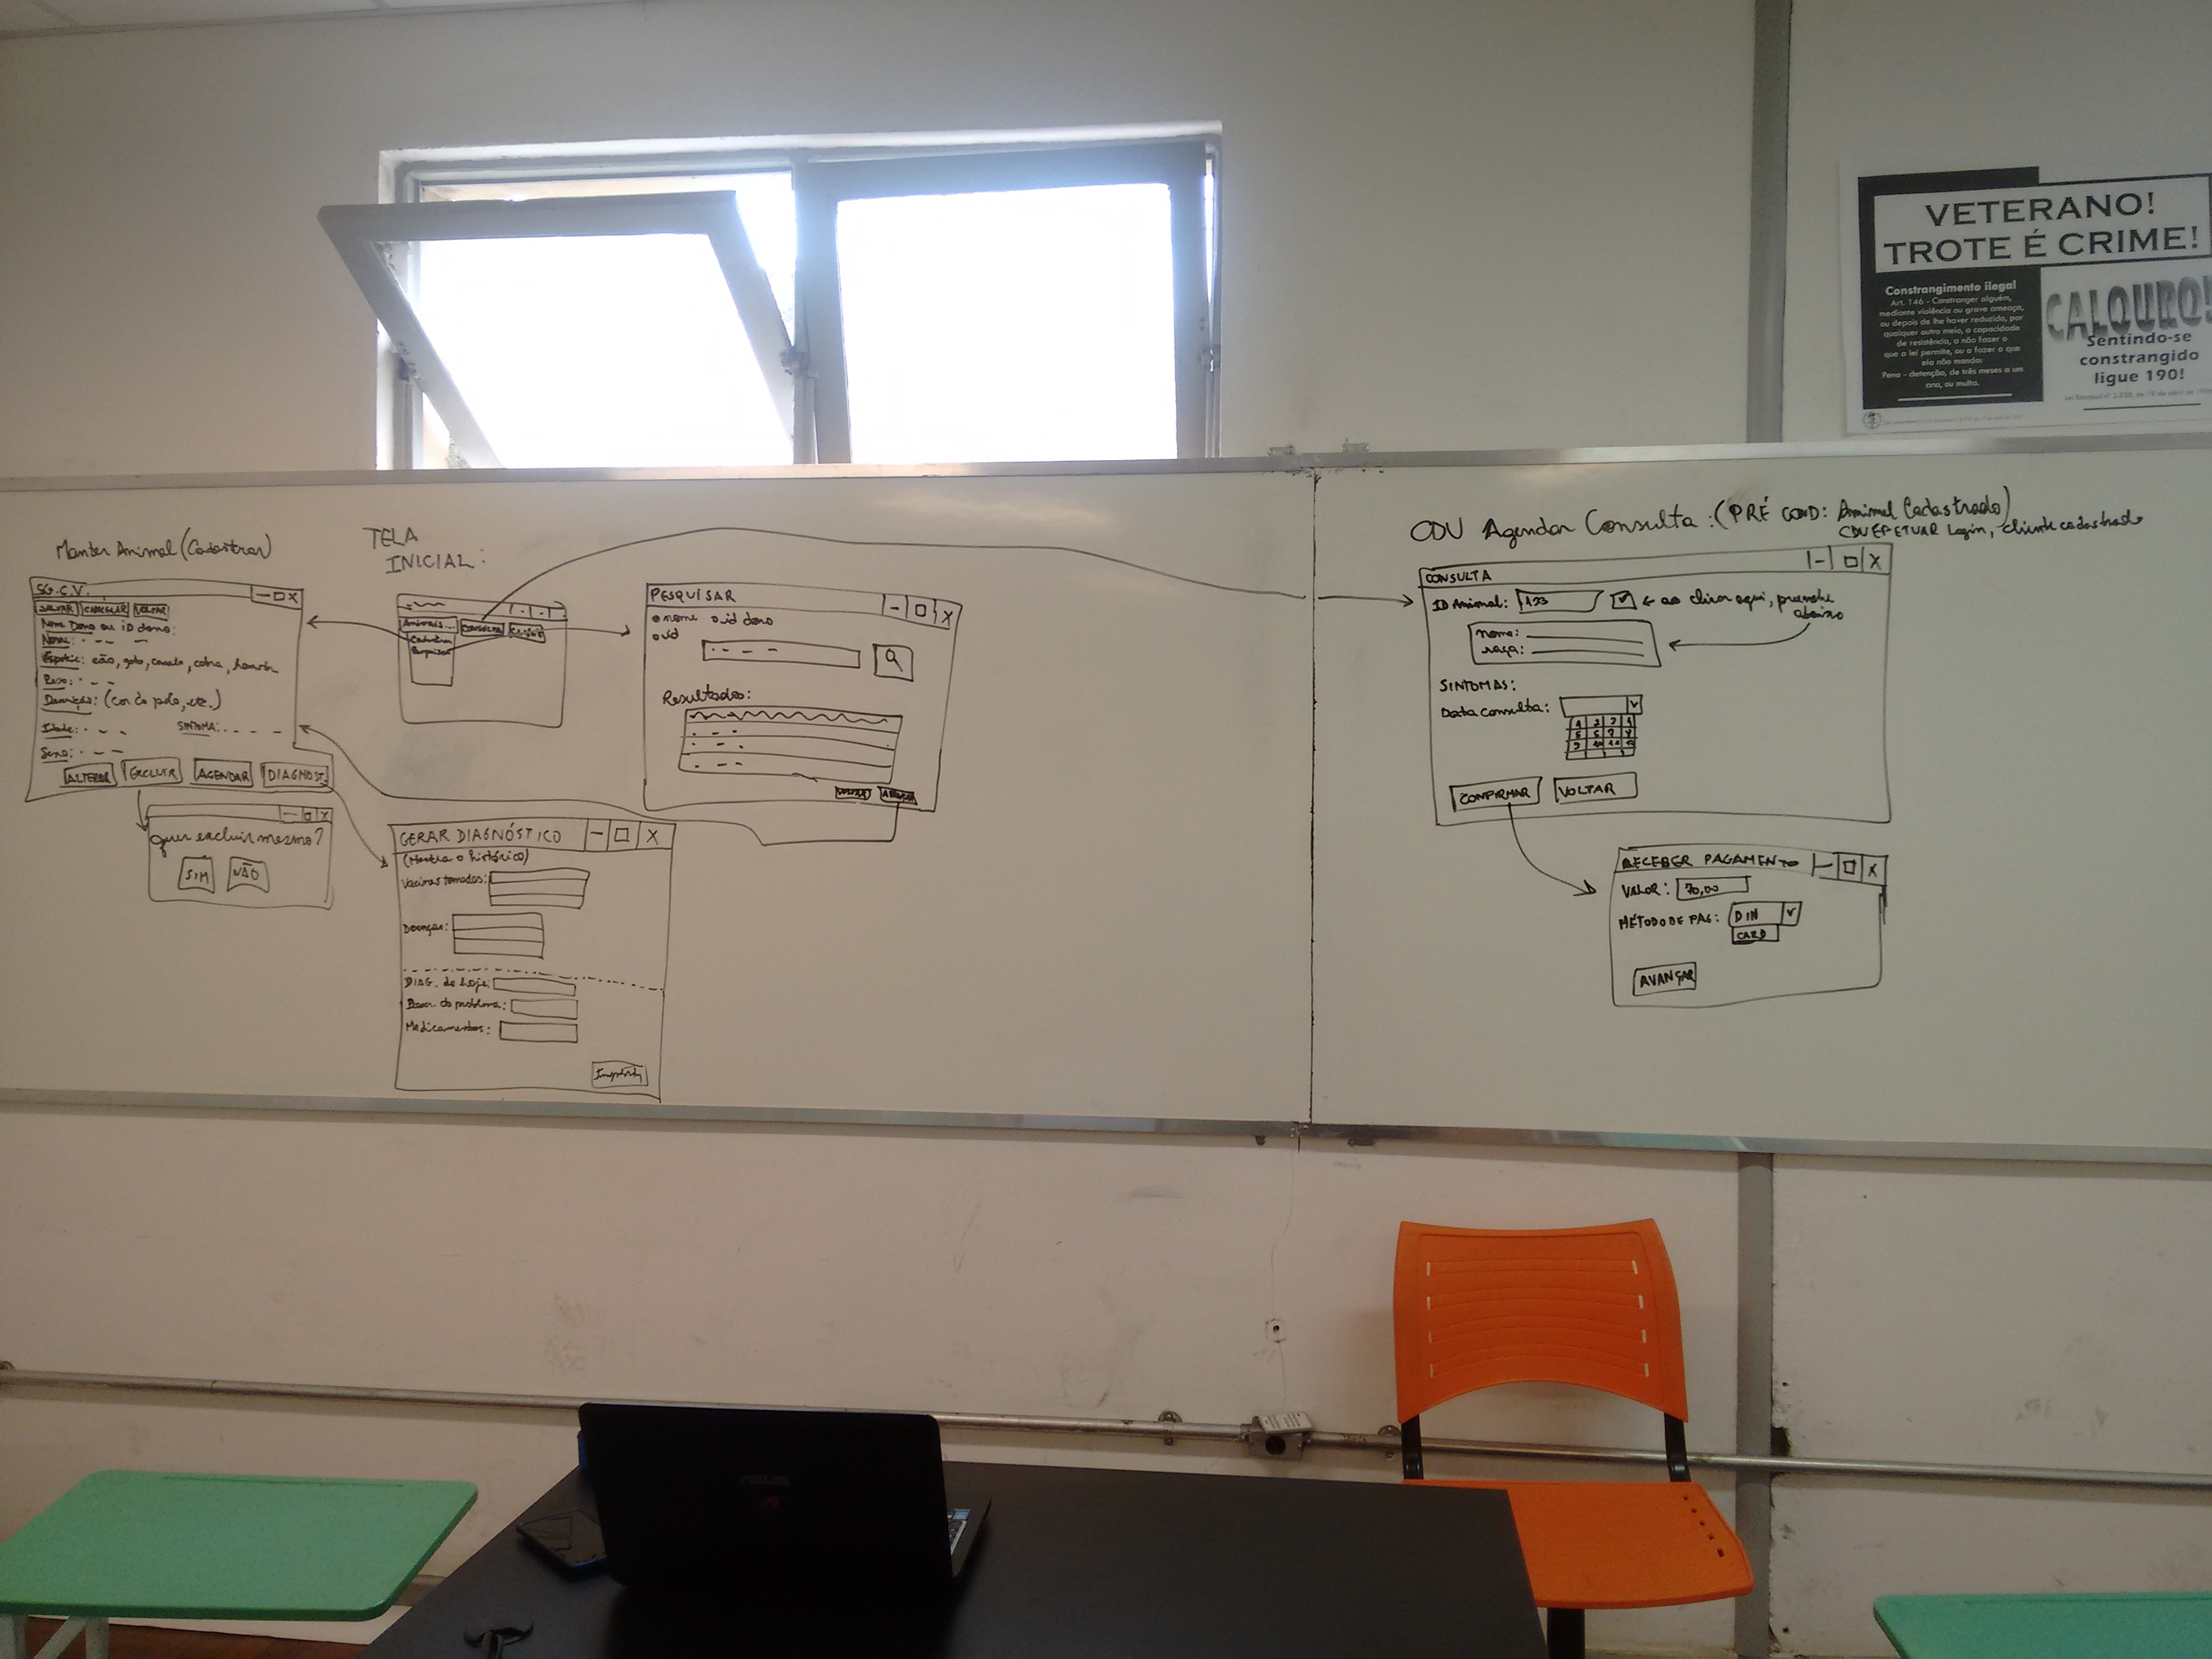 VETERANO!
TROTE É CRIME!
Constrangimento ilegal
Art. 146 - Constranger alguém,
mediante violência ou grave ameaça,
ou depois de lhe haver reduzido, por
qualquer outro meio, a capacidade
de resistência, a não fazer o
que a lei permite, ou a fazer o que
ela não manda:
Pena - detenção, de três meses a um
ano, ou multa.
CALOURO!
Sentindo-se
constrangido
ligue 190!
Manter Animal (Cadastrar)
S.G.C.V.
SALVAR CANCELAR VOLTAR
Nome Dono ou iD dono:
Nome:
Espécie: cão, gato, cavalo, cobra,
Raça:
Descrição: (cor do pelo, etc.)
Idade: SINTOMA:
Sexo:
ALTERAR EXCLUIR AGENDAR DIAGNOST.
Quer excluir mesmo?
SIM NÃO
TELA
INICIAL:
Animais...
CONSULTA
Cadastrar
Pesquisar
PESQUISAR
nome id dono
id
Resultados:
VOLTAR
GERAR DIAGNÓSTICO
(Mostra o histórico)
Vacinas tomadas:
Doenças:
DIAG. de hoje:
Descr. do problema:
Medicamentos:
CDU Agendar Consulta: (PRÉ COND: Animal Cadastrado)
CDU EFETUAR Login, cliente cadastrado
CONSULTA
ID Animal: 123 ao clicar aqui, preenche
abaixo
nome:
raça:
SINTOMAS:
Data Consulta:
1 2 3 4
5 6 7 8
9 10 11 12
CONFIRMAR VOLTAR
RECEBER PAGAMENTO
VALOR: 70,00
MÉTODO DE PAG: DIN
CARD
AVANÇAR
ASUS